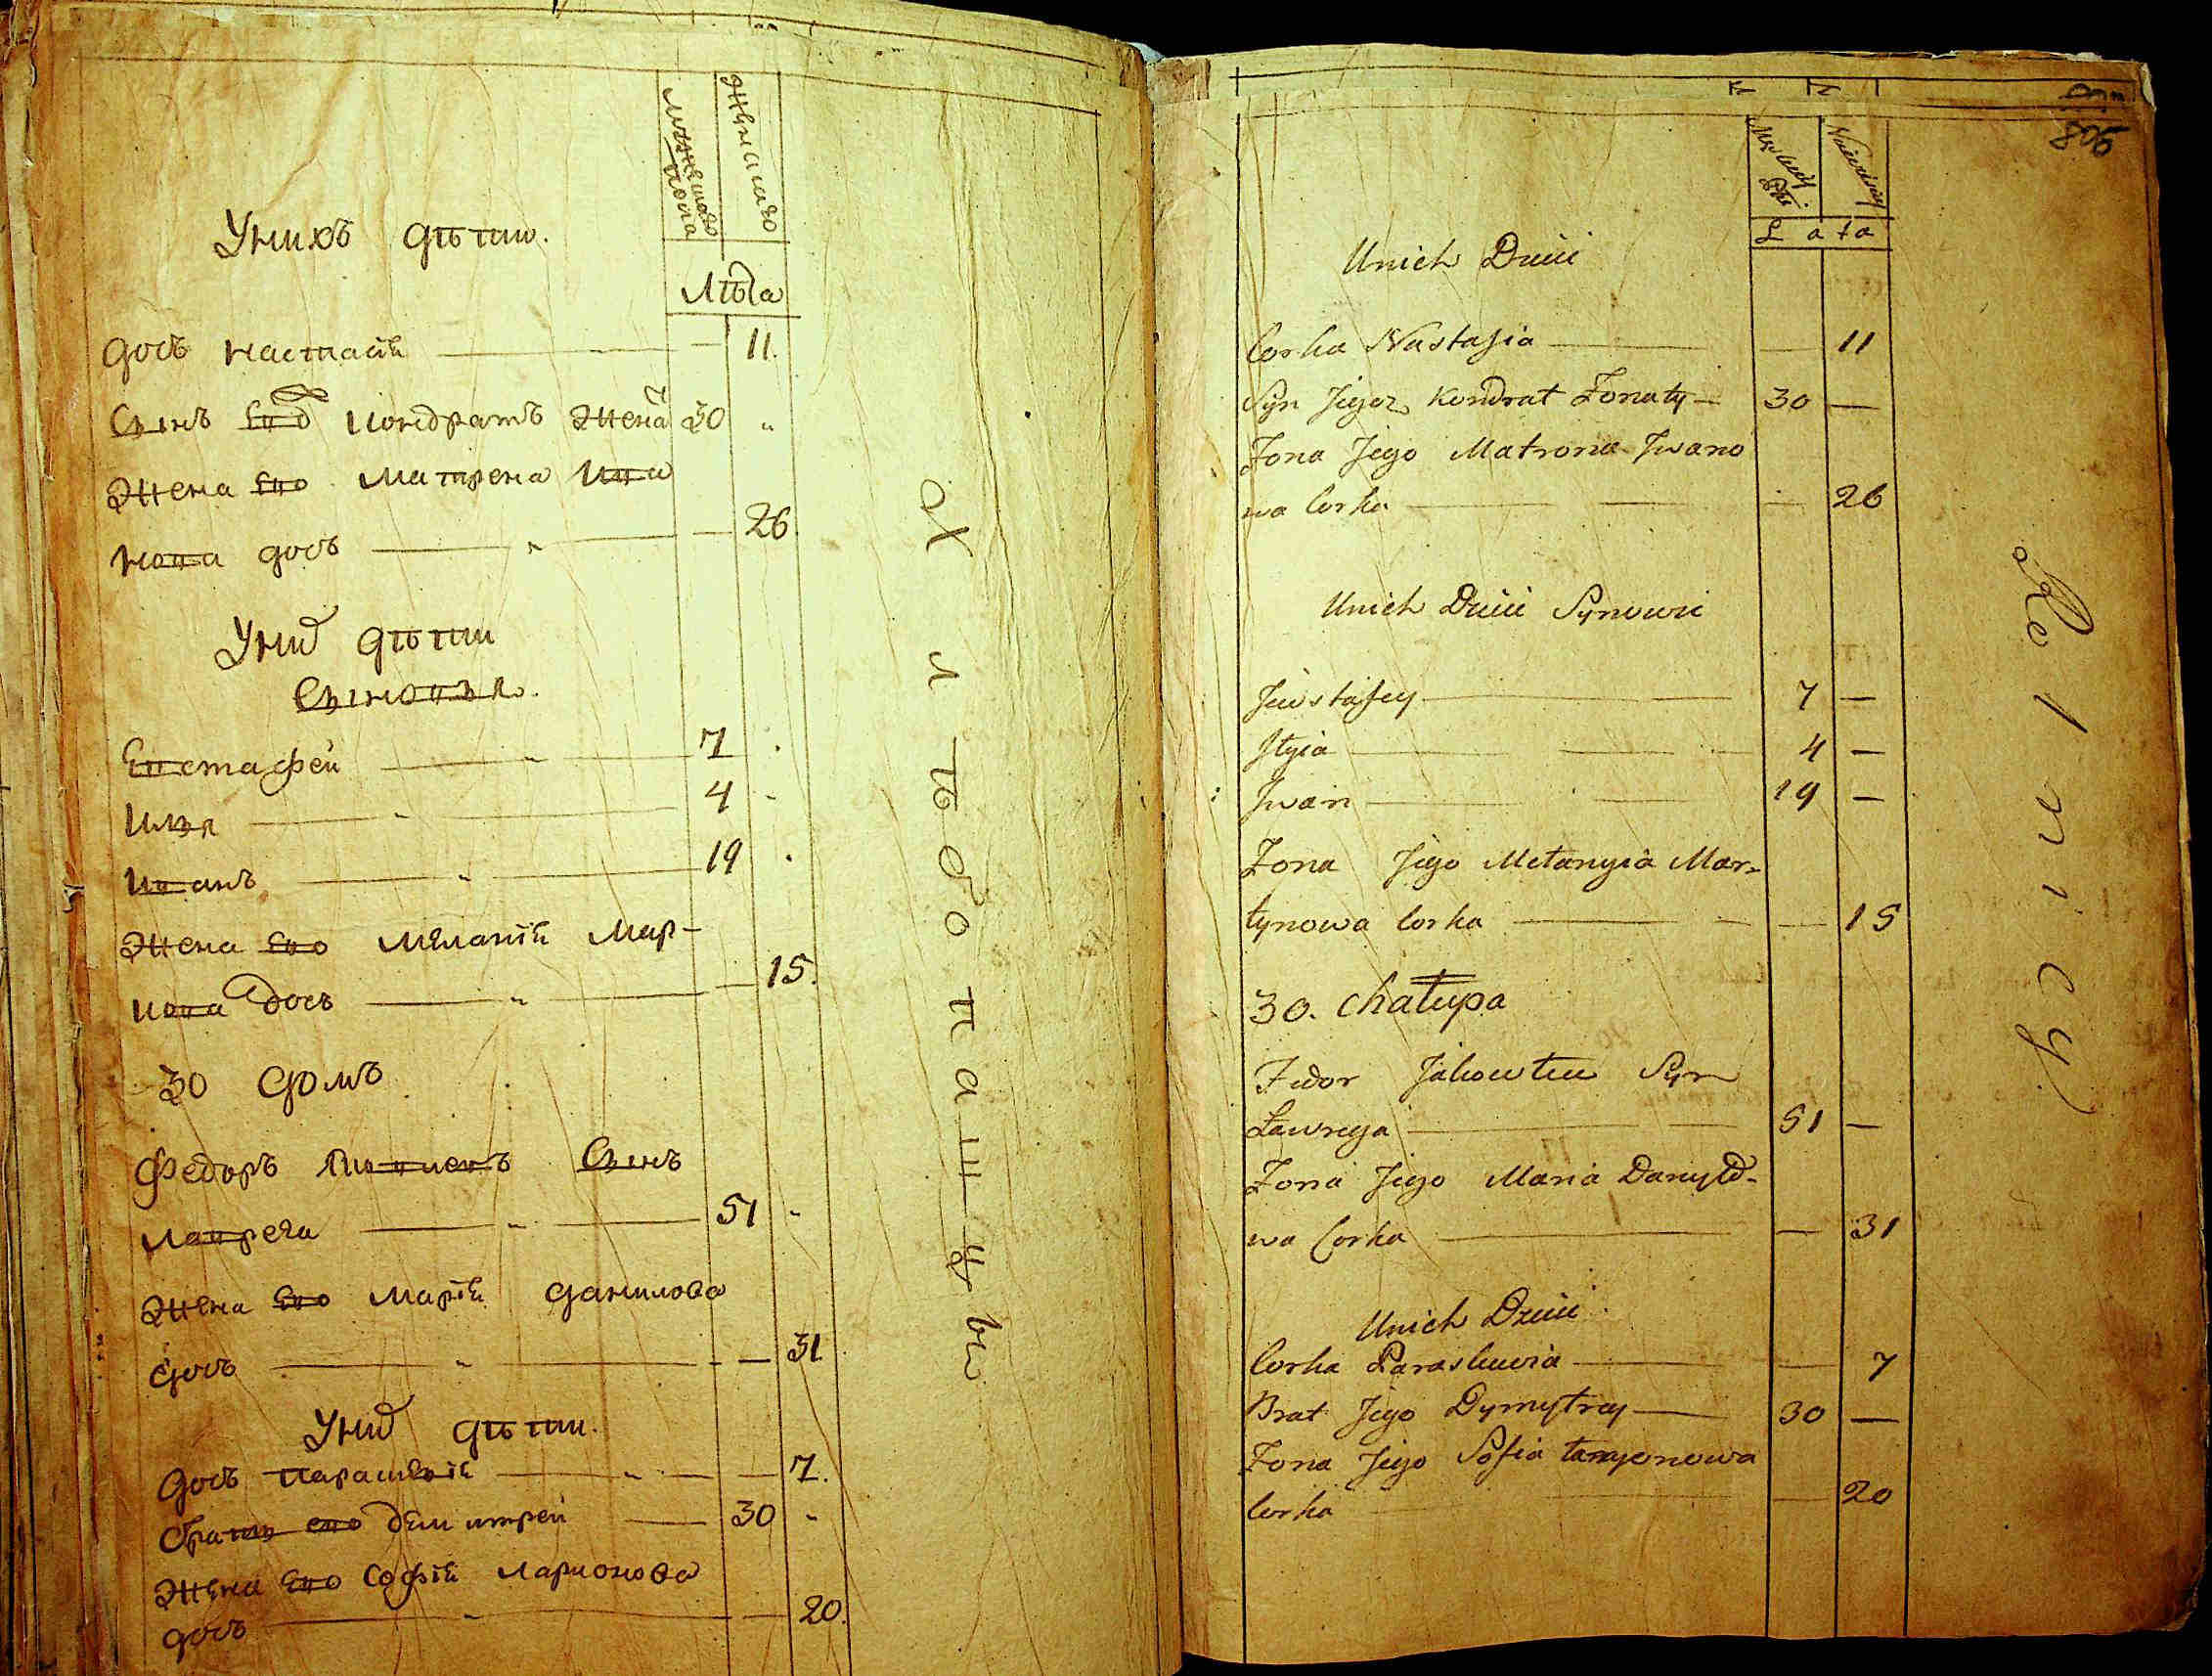 Мужеска пола
Женска
Лѣта
Унихъ дѣти.
дочь настасія — 11.
Сынъ его Кондратъ жена 30 "
Жена его Матрена Ива
нова дочь — 26.
Унихъ дѣти
Сыновья.
Евстафей 7
Илья 4
Иванъ 19
Жена его Меланія Мар-
нова дочь — 15.
30 домъ
Федоръ Яковлевъ Сынъ
Лавреза 51
Жена его Марія данилова
дочь — 31
Унихъ дѣти.
дочь Параскевія — 7.
братъ его демитрей 30
Жена его Софія ларионова
дочь — 20.
Хлѣбопашцы
806
Męskiey Płci
Niewieściey
Lata
Unich Dzieci
Corka Nastasia — 11
Syn Jegoż Kondrat Zonaty 30 —
Zona Jego Matrona Jwano
wa Corka — 26
Unich Dzieci Synowie
Jewstafey 7 —
Jlyia 4 —
Jwan 19 —
Zona Jego Mełanyia Mar-
tynowa Corka — 15
30. Chałupa
Fedor Jakowlew Syn
Ławreya 51 —
Zona Jego Maria Daniło-
wa Corka — 31
Unich Dzieci
Corka Paraskiewia — 7
Brat Jego Dymytrey 30 —
Zona Jego Sofia Łaryonowa
Corka — 20
Rolnicy